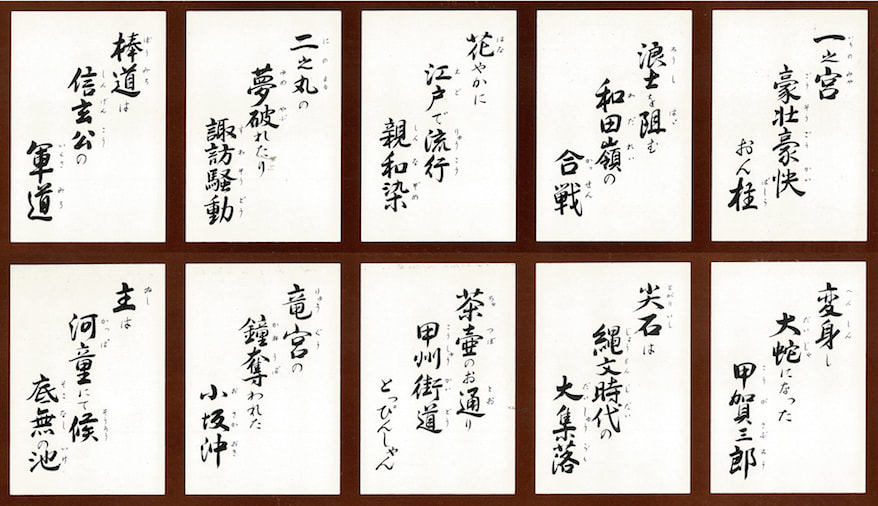 一之宮
豪壮豪快
おん柱
浪士を阻む
和田嶺の
合戦
花やかに
江戸で流行
親和染
二之丸の
夢破れたり
諏訪騒動
棒道は
信玄公の
軍道
変身し
大蛇になった
甲賀三郎
尖石は
縄文時代の
大集落
茶壷のお通り
甲州街道
とっぴんしゃん
竜宮の
鐘奪われた
小坂沖
主は
河童にて候
底無の池